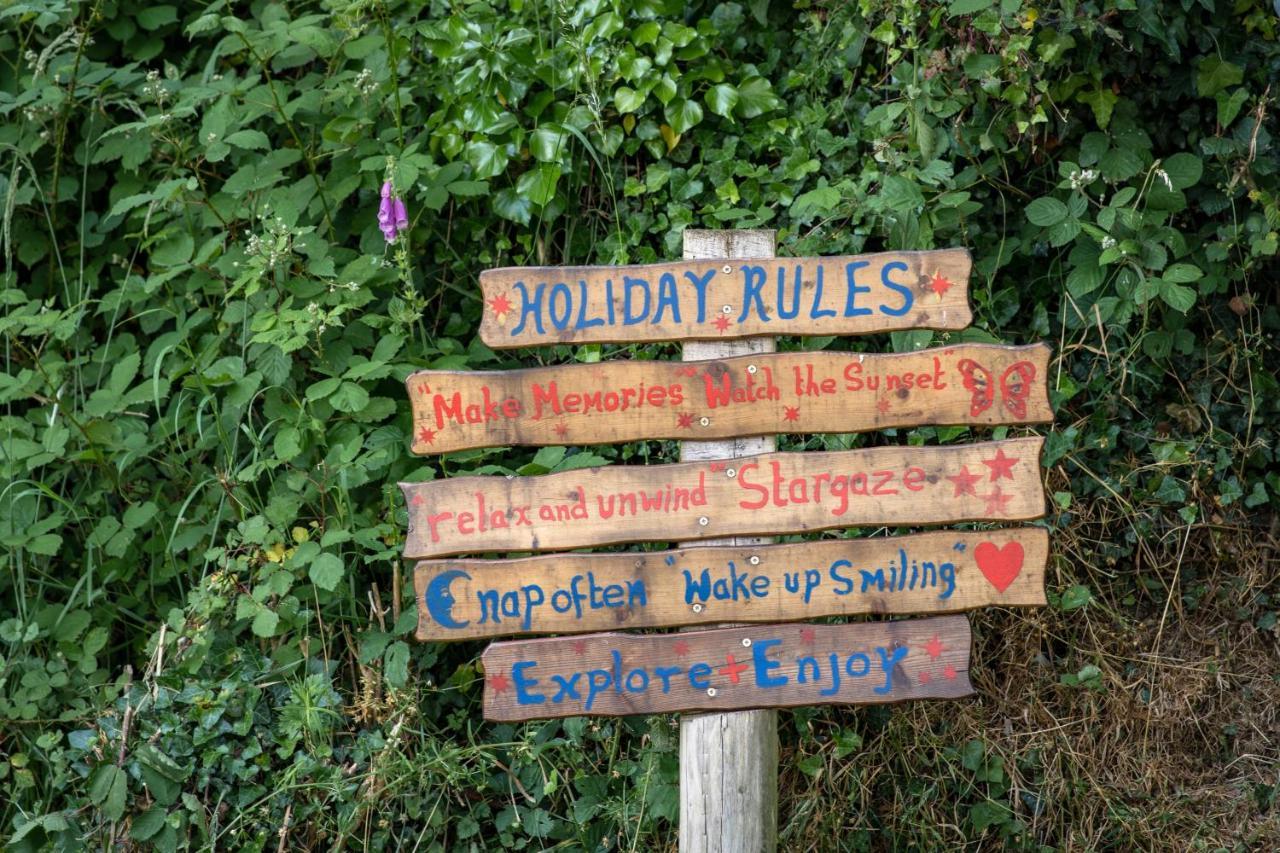 HOLIDAY RULES
"Make Memories" Watch the Sunset"
relax and unwind" "Stargaze
nap often "Wake up Smiling"
Explore + Enjoy